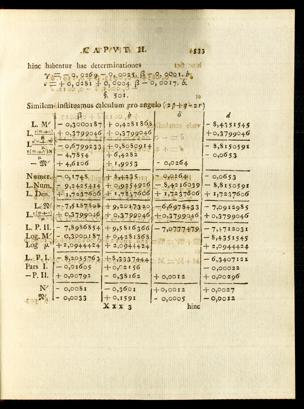 C A P V T II. 533
hinc habentur hae determinationes
γ = − 0, 0269 − 0, 0025. β − 0, 0001. δ,
ε = + 0, 0281 + 0, 0004 β − 0, 0017. δ.
§. 301.
Similem instituamus calculum pro angulo (2p+q=2r)
β δ d
L. M' − 0,3000187 + 0,4281868 − 8,4351545
+ 0,3799046 + 0,3799046 + 0,3799046
− 0,6799233 + 0,8080914 − 8,8150591
− 4,7854 + 6,4282 − 0,0653
+ 4,6105 + 1,9953 − 0,0264
Numer. − 0,1745 + 8,4235 − 0,0264 − 0,0653
L.Num. − 9,2425414 + 0,9254916 − 8,4216039 − 8,8150591
L. Den. + 1,7237606 + 1,7237606 + 1,7237606 + 1,7237606
− 7,5187898 + 9,2017320 − 6,6978433 − 7,0912985
+ 0,3799046 + 0,3799046 + 0,3799046 + 0,3799046
L. P. II. − 7,8986854 + 9,5816366 − 7,0777479 − 7,4712031
Log. M' − 0,3000187 + 0,4281868 − 8,4351545
Log μ + 2,0944424 + 2,0944424 + 2,0944424
L. P. I. − 8,2055763 + 8,3337444 − 6,3407121
Pars I. − 0,01605 + 0,02156 − 0,00022
− P. II. + 0,00792 − 0,38162 + 0,0012 + 0,00296
N' − 0,0081 − 0,3601 + 0,0012 + 0,0027
− 0,0033 + 0,1591 − 0,0005 − 0,0012
X x x 3 hinc